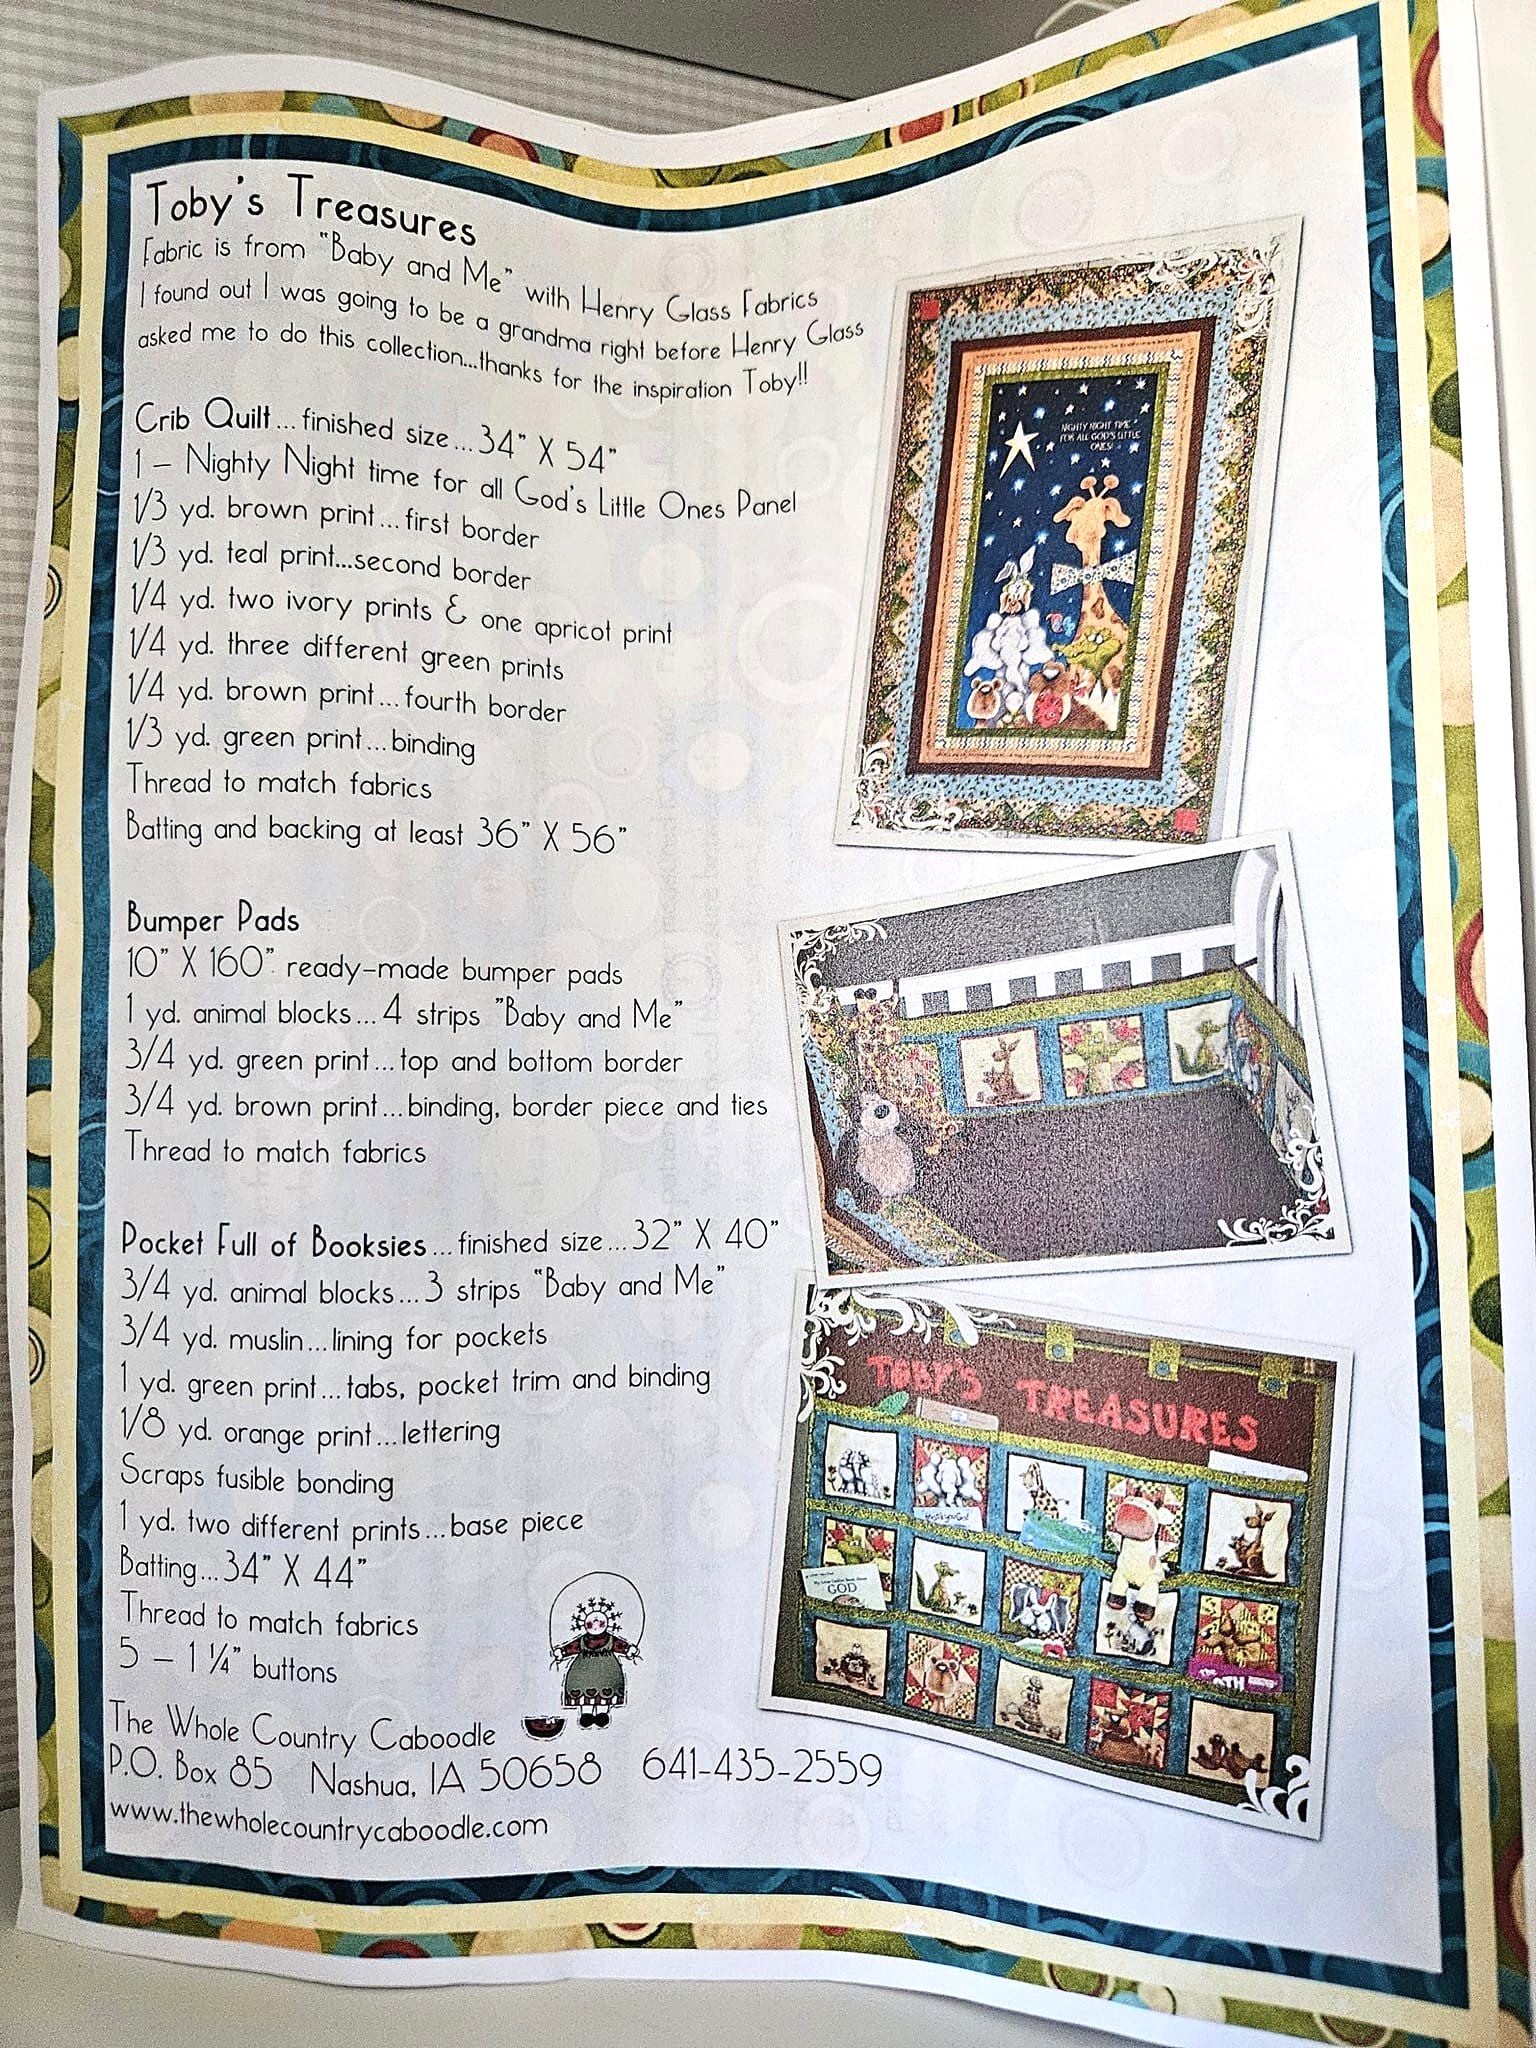 Toby's Treasures
Fabric is from "Baby and Me" with Henry Glass Fabrics
I found out I was going to be a grandma right before Henry Glass
asked me to do this collection...thanks for the inspiration Toby!!
Crib Quilt...finished size...34" X 54"
1 – Nighty Night time for all God's Little Ones Panel
1/3 yd. brown print...first border
1/3 yd. teal print...second border
1/4 yd. two ivory prints & one apricot print
1/4 yd. three different green prints
1/4 yd. brown print...fourth border
1/3 yd. green print...binding
Thread to match fabrics
Batting and backing at least 36" X 56"
Bumper Pads
10" X 160" ready-made bumper pads
1 yd. animal blocks...4 strips "Baby and Me"
3/4 yd. green print...top and bottom border
3/4 yd. brown print...binding, border piece and ties
Thread to match fabrics
Pocket Full of Booksies...finished size...32" X 40"
3/4 yd. animal blocks...3 strips "Baby and Me"
3/4 yd. muslin...lining for pockets
1 yd. green print...tabs, pocket trim and binding
1/8 yd. orange print...lettering
Scraps fusible bonding
1 yd. two different prints...base piece
Batting...34" X 44"
Thread to match fabrics
5 – 1 1/4" buttons
The Whole Country Caboodle
P.O. Box 85 Nashua, IA 50658 641-435-2559
www.thewholecountrycaboodle.com
NIGHTY NIGHT TIME
FOR ALL GOD'S LITTLE
ONES!
TOBY'S TREASURES
GOD